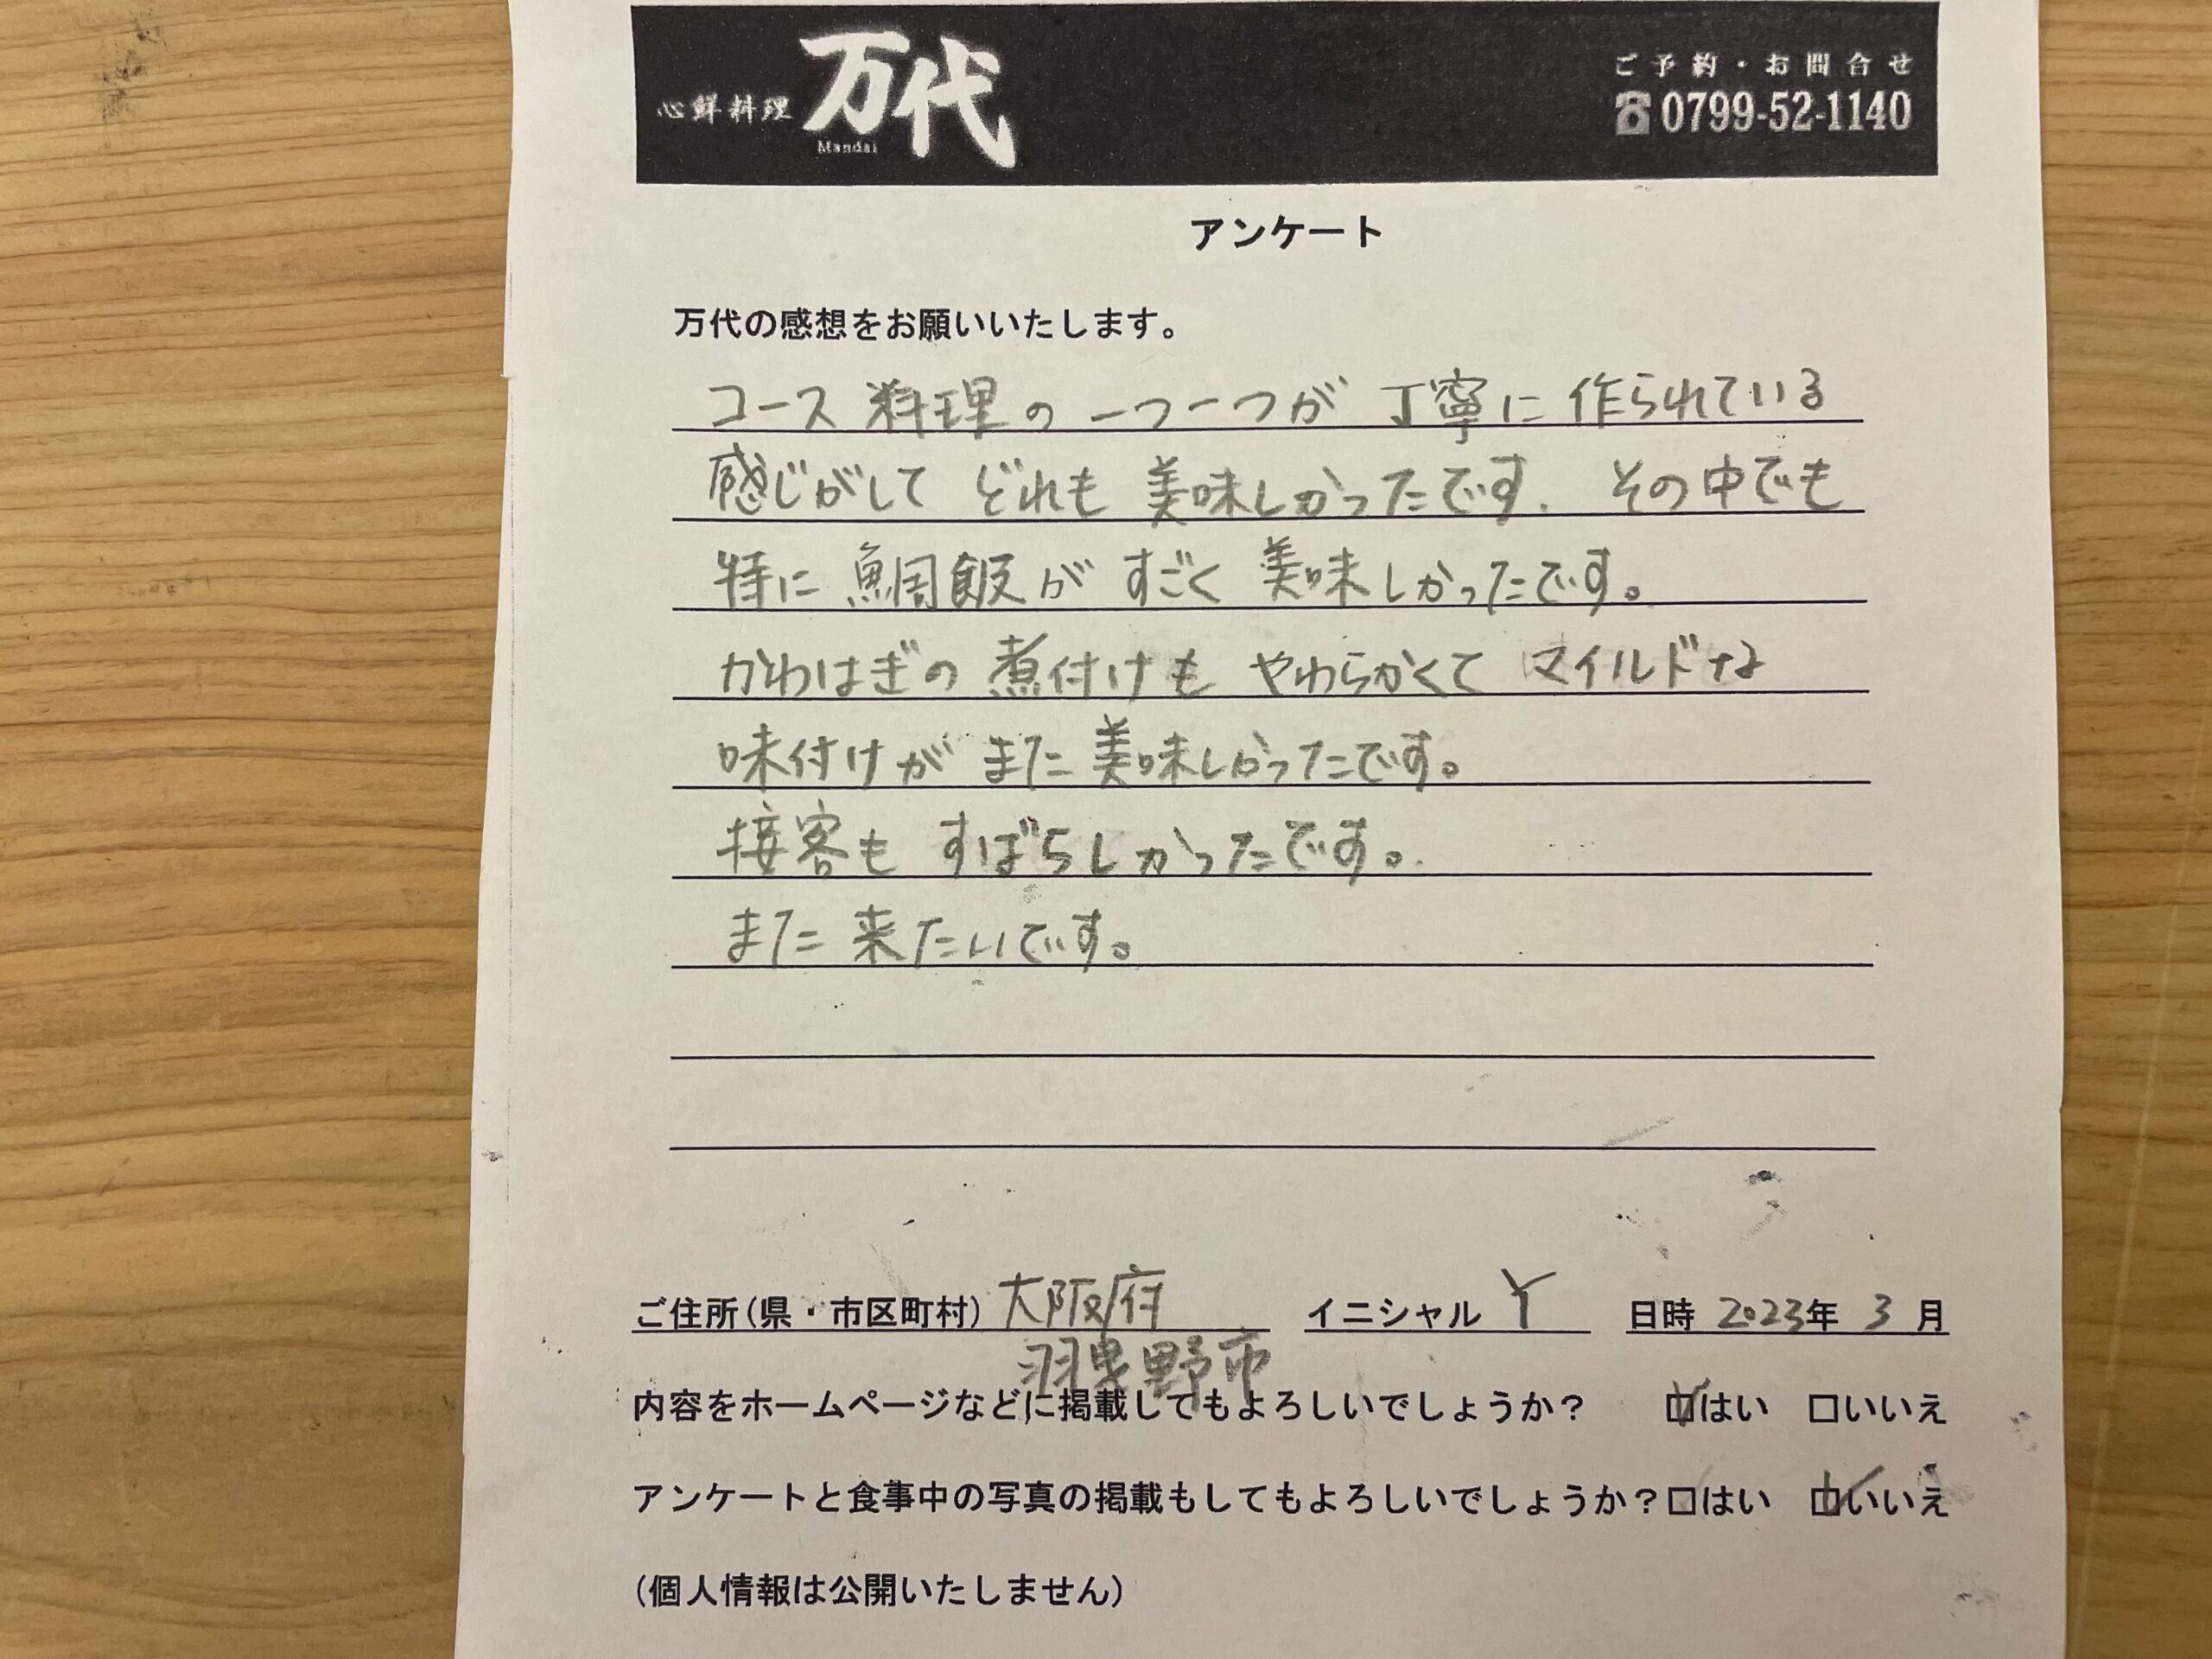 心鮮料理 万代
Mandai
ご予約・お問合せ
☎0799-52-1140
アンケート
万代の感想をお願いいたします。
コース料理の一つ一つが丁寧に作られている
感じがして どれも 美味しかったです. その中でも
特に 鯛飯が すごく 美味しかったです。
かわはぎの 煮付けも やわらかくて マイルドな
味付けが また 美味しかったです。
接客も すばらしかったです。
また 来たいです。
ご住所(県・市区町村) 大阪府 イニシャル Y 日時 2023年 3月
羽曳野市
内容をホームページなどに掲載してもよろしいでしょうか? ☑はい □いいえ
アンケートと食事中の写真の掲載もしてもよろしいでしょうか?□はい ☑いいえ
(個人情報は公開いたしません)